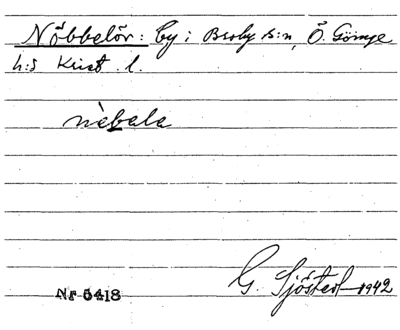 Nöbbelöv: by i Broby s:n, Ö. Göinge
h:d Krist. l.
nèbala
G. Sjöstedt 1942
Nr 5418